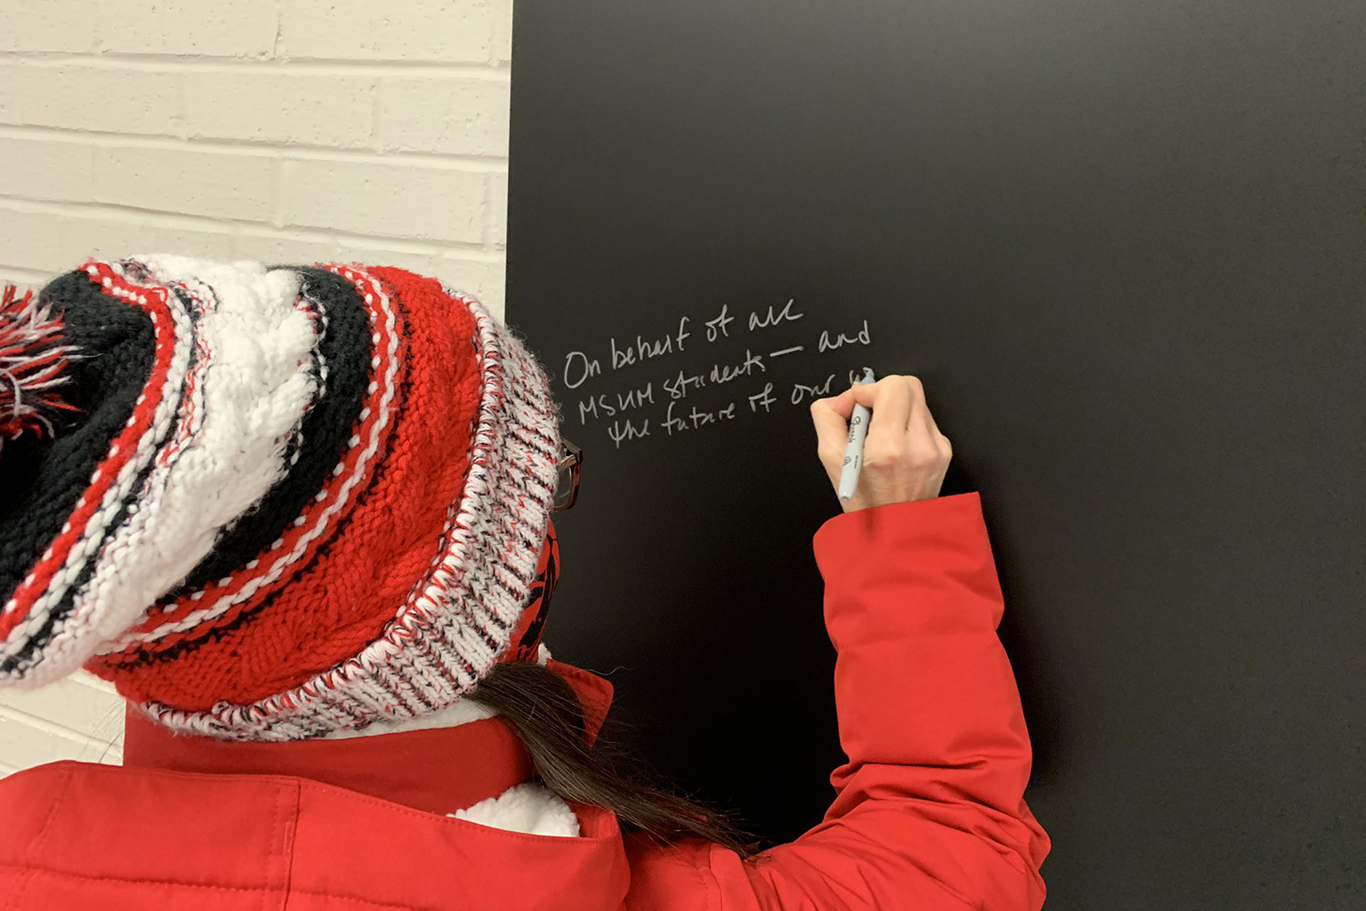 On behalf of all
MSUM students — and
the future of our
Sharpie